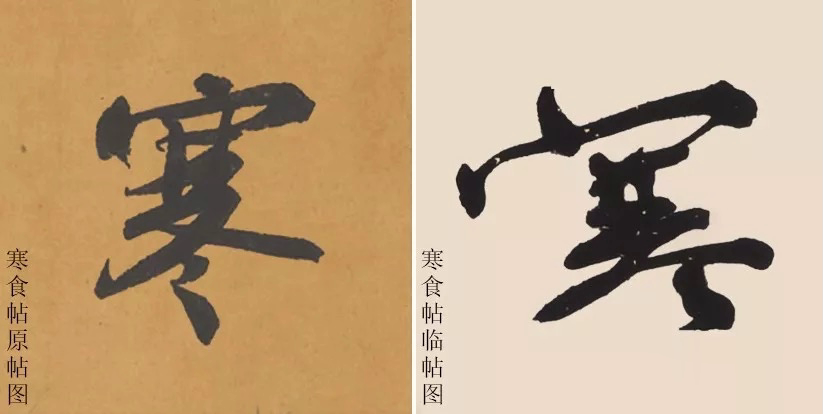 寒
寒食帖原帖图
寒
寒食帖临帖图